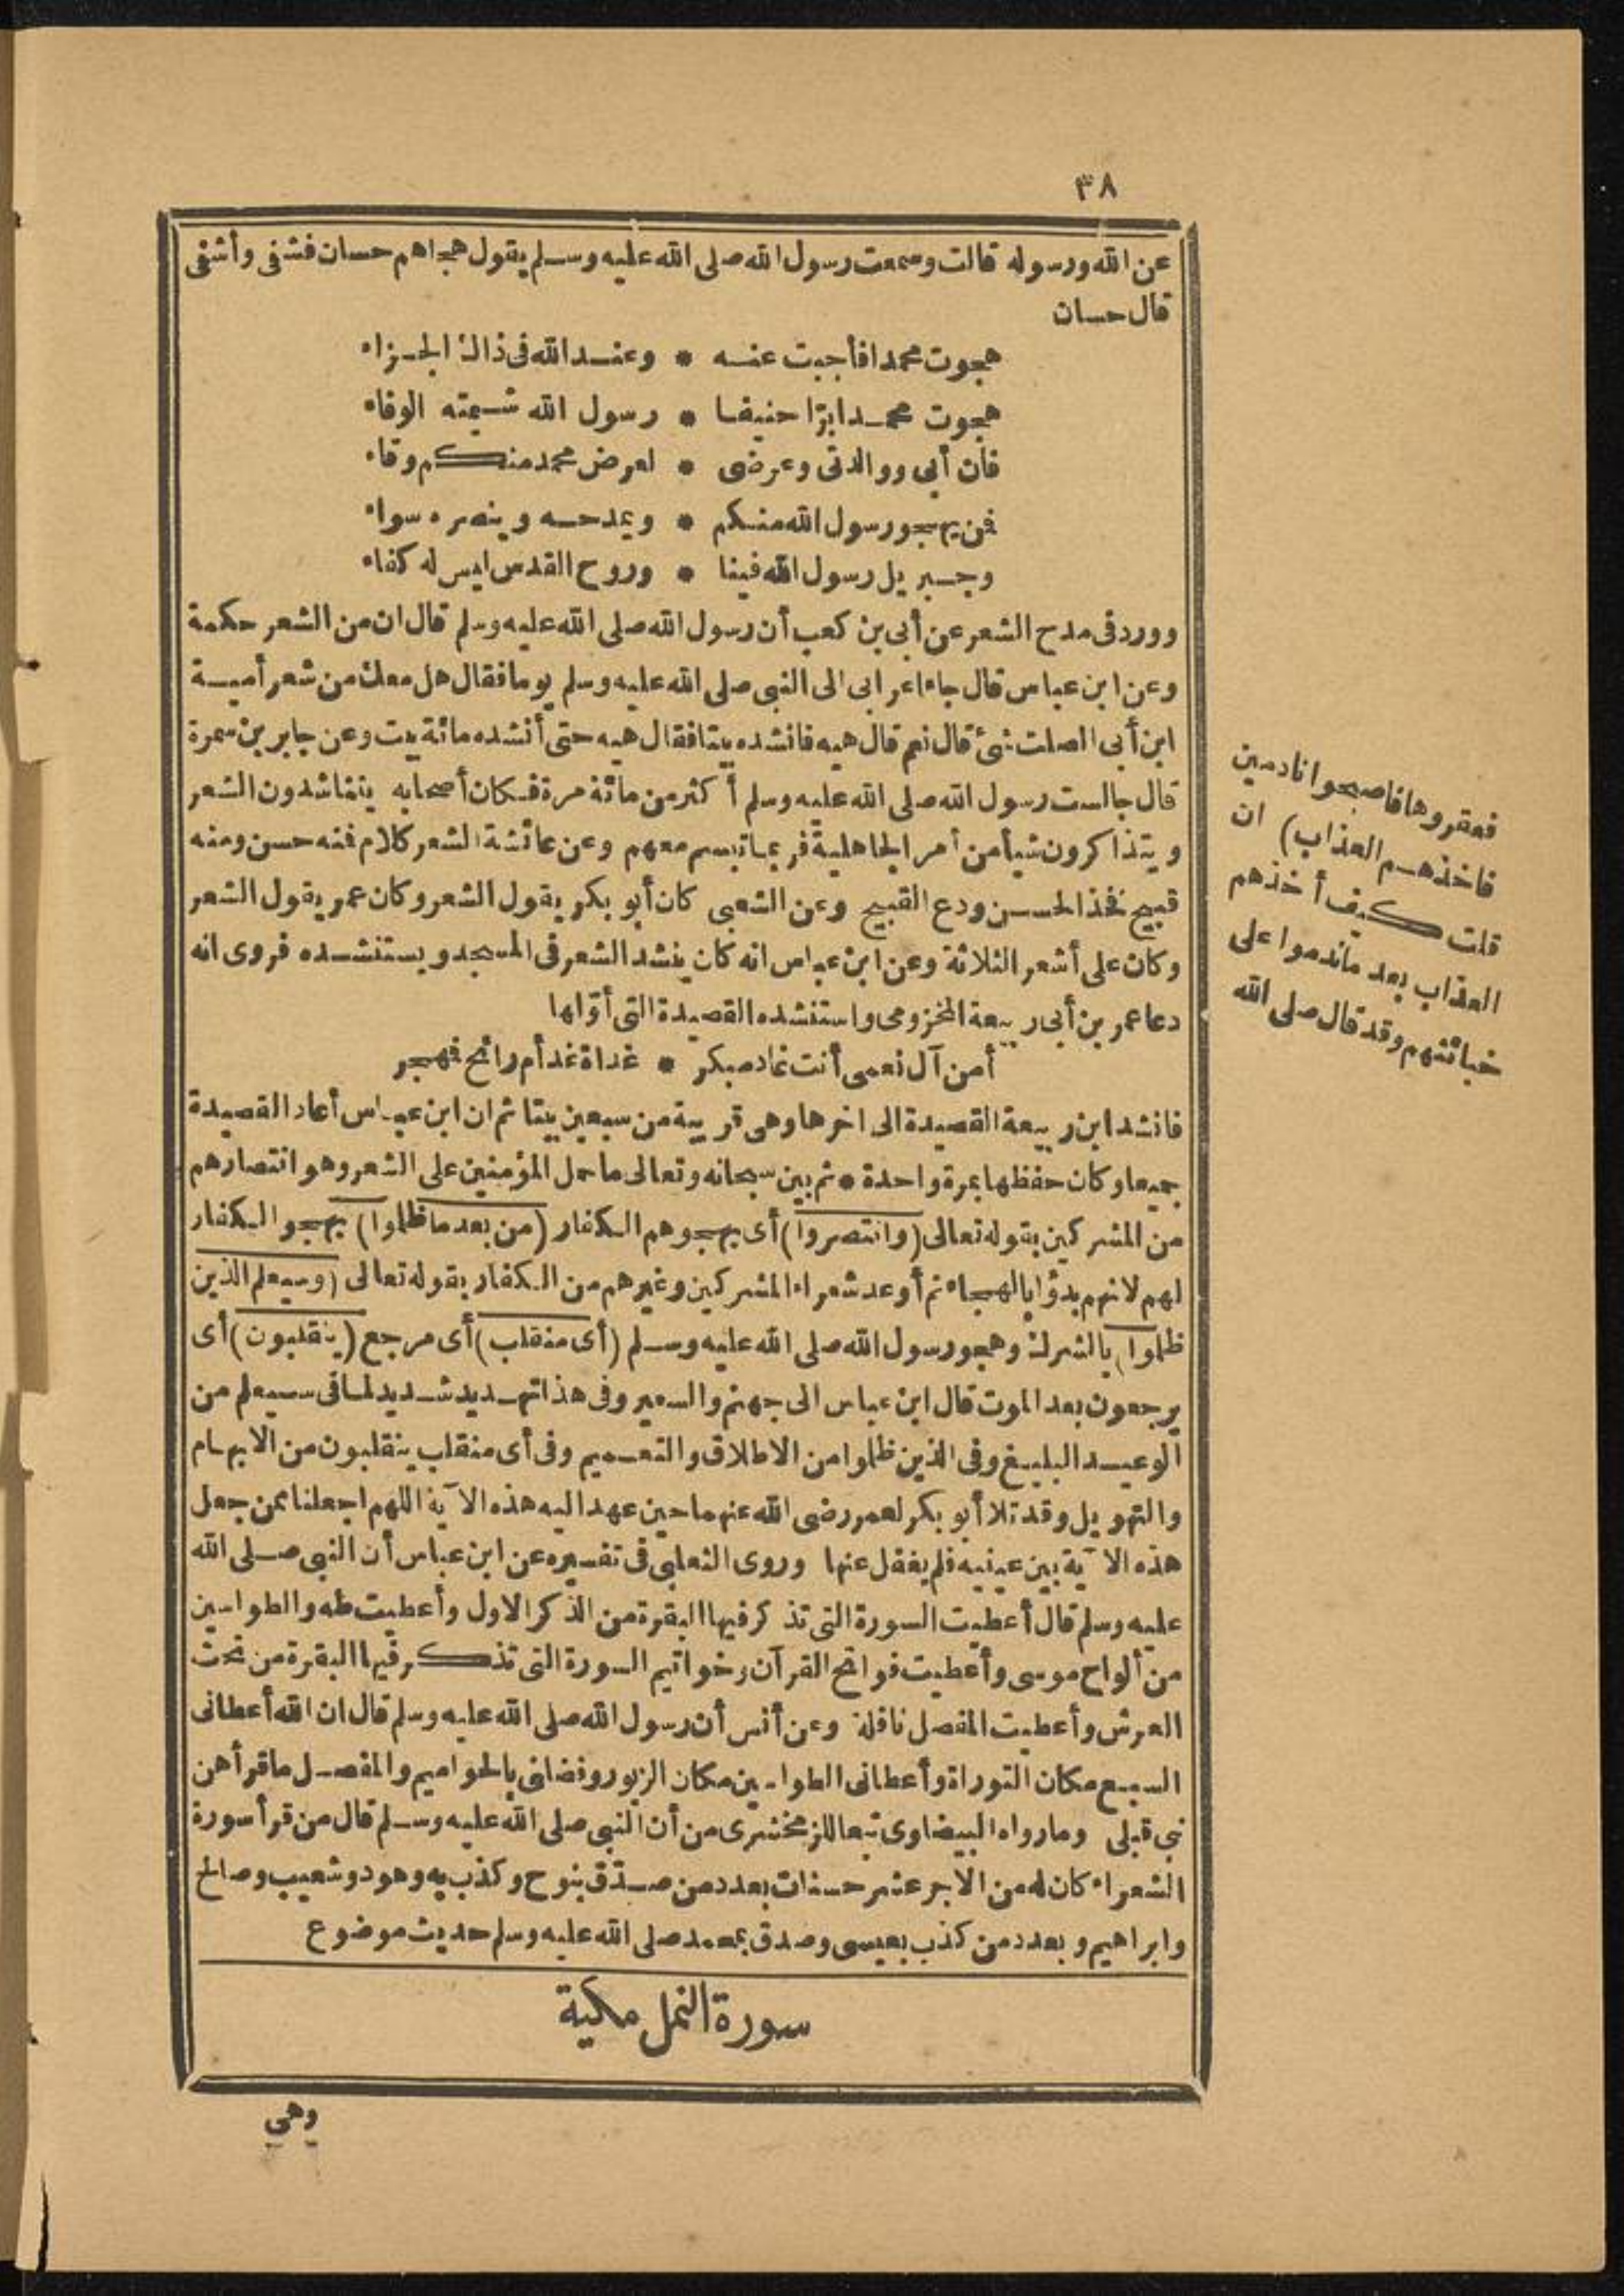 ٣٨
عن الله ورسوله قالت وسمعت رسول الله صلى الله عليه وسلم يقول هجاهم حسان فشفى وأشفى
قال حسان
هجوت محمدا فأجبت عنه * وعند الله فى ذاك الجزاء
هجوت محمدا برّا حنيفا * رسول الله شيمته الوفاء
فان أبى ووالدتى وعرضى * لعرض محمد منكم وقاء
فمن يهجو رسول الله منكم * ويمدحه وينصره سواء
وجبريل رسول الله فينا * وروح القدس ليس له كفاء
وورد فى مدح الشعر عن أبى بن كعب أن رسول الله صلى الله عليه وسلم قال ان من الشعر حكمة
وعن ابن عباس قال جاء اعرابى الى النبى صلى الله عليه وسلم يوما فقال هل معك من شعر أمية
ابن أبى الصلت شئ قال نعم قال هيه فانشده بيتا فقال هيه حتى أنشده مائة بيت وعن جابر بن سمرة
قال جالست رسول الله صلى الله عليه وسلم أكثر من مائة مرة فكان أصحابه يتناشدون الشعر
ويتذاكرون شيأ من أمر الجاهلية فربما تبسم معهم وعن عائشة الشعر كلام فمنه حسن ومنه
قبيح فخذ الحسن ودع القبيح وعن الشعبى كان أبو بكر يقول الشعر وكان عمر يقول الشعر
وكان على أشعر الثلاثة وعن ابن عباس انه كان ينشد الشعر فى المسجد ويستنشده فروى انه
دعا عمر بن أبى ربيعة المخزومى واستنشده القصيدة التى أوّلها
أمن آل نعمى أنت غاد مبكر * غداة غد أم رائح فمهجر
فانشد ابن ربيعة القصيدة الى اخرها وهى قريبة من سبعين بيتا ثم ان ابن عباس أعاد القصيدة
جميعا وكان حفظها بمرة واحدة * ثم بين سبحانه وتعالى ما حمل المؤمنين على الشعر وهو انتصارهم
من المشركين بقوله تعالى (وانتصروا) أى بهجوهم الكفار (من بعد ما ظلموا) بهجو الكفار
لهم لانهم بدؤا بالهجاء ثم أوعد شعراء المشركين وغيرهم من الكفار بقوله تعالى (وسيعلم الذين
ظلموا) بالشرك وهجو رسول الله صلى الله عليه وسلم (أى منقلب) أى مرجع (ينقلبون) أى
يرجعون بعد الموت قال ابن عباس الى جهنم والسعير وفى هذا تهديد شديد لما فى سيعلم من
الوعيد البليغ وفى الذين ظلموا من الاطلاق والتعميم وفى أى منقلب ينقلبون من الابهام
والتهويل وقد تلا أبو بكر لعمر رضى الله عنهما حين عهد اليه هذه الآية اللهم اجعلنا ممن جعل
هذه الآية بين عينيه فلم يغفل عنها وروى الثعلبى فى تفسيره عن ابن عباس أن النبى صلى الله
عليه وسلم قال أعطيت السورة التى تذكر فيها البقرة من الذكر الاول وأعطيت طه والطواسين
من ألواح موسى وأعطيت فواتح القرآن وخواتيم السورة التى تذكر فيها البقرة من تحت
العرش وأعطيت المفصل نافلة وعن أنس أن رسول الله صلى الله عليه وسلم قال ان الله أعطانى
السبع مكان التوراة وأعطانى الطواسين مكان الزبور وفضلنى بالحواميم والمفصل ما قرأهن
نبى قبلى وما رواه البيضاوى تبعا للزمخشرى من أن النبى صلى الله عليه وسلم قال من قرأ سورة
الشعراء كان له من الاجر عشر حسنات بعدد من صدّق بنوح وكذب به وهود وشعيب وصالح
وابراهيم وبعدد من كذب بعيسى وصدق بمحمد صلى الله عليه وسلم حديث موضوع
سورة النمل مكية
وهى
فعقروها فاصبحوا نادمين
فاخذهم العذاب) ان
قلت كيف أخذهم
العذاب بعد ما ندموا على
خيانتهم وقد قال صلى الله